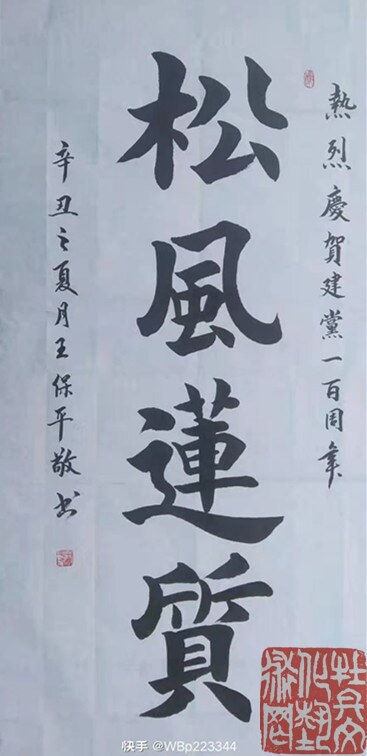 熱烈慶賀建黨一百周年
松風蓮質
辛丑之夏月王保平敬书
快手 @WBp223344